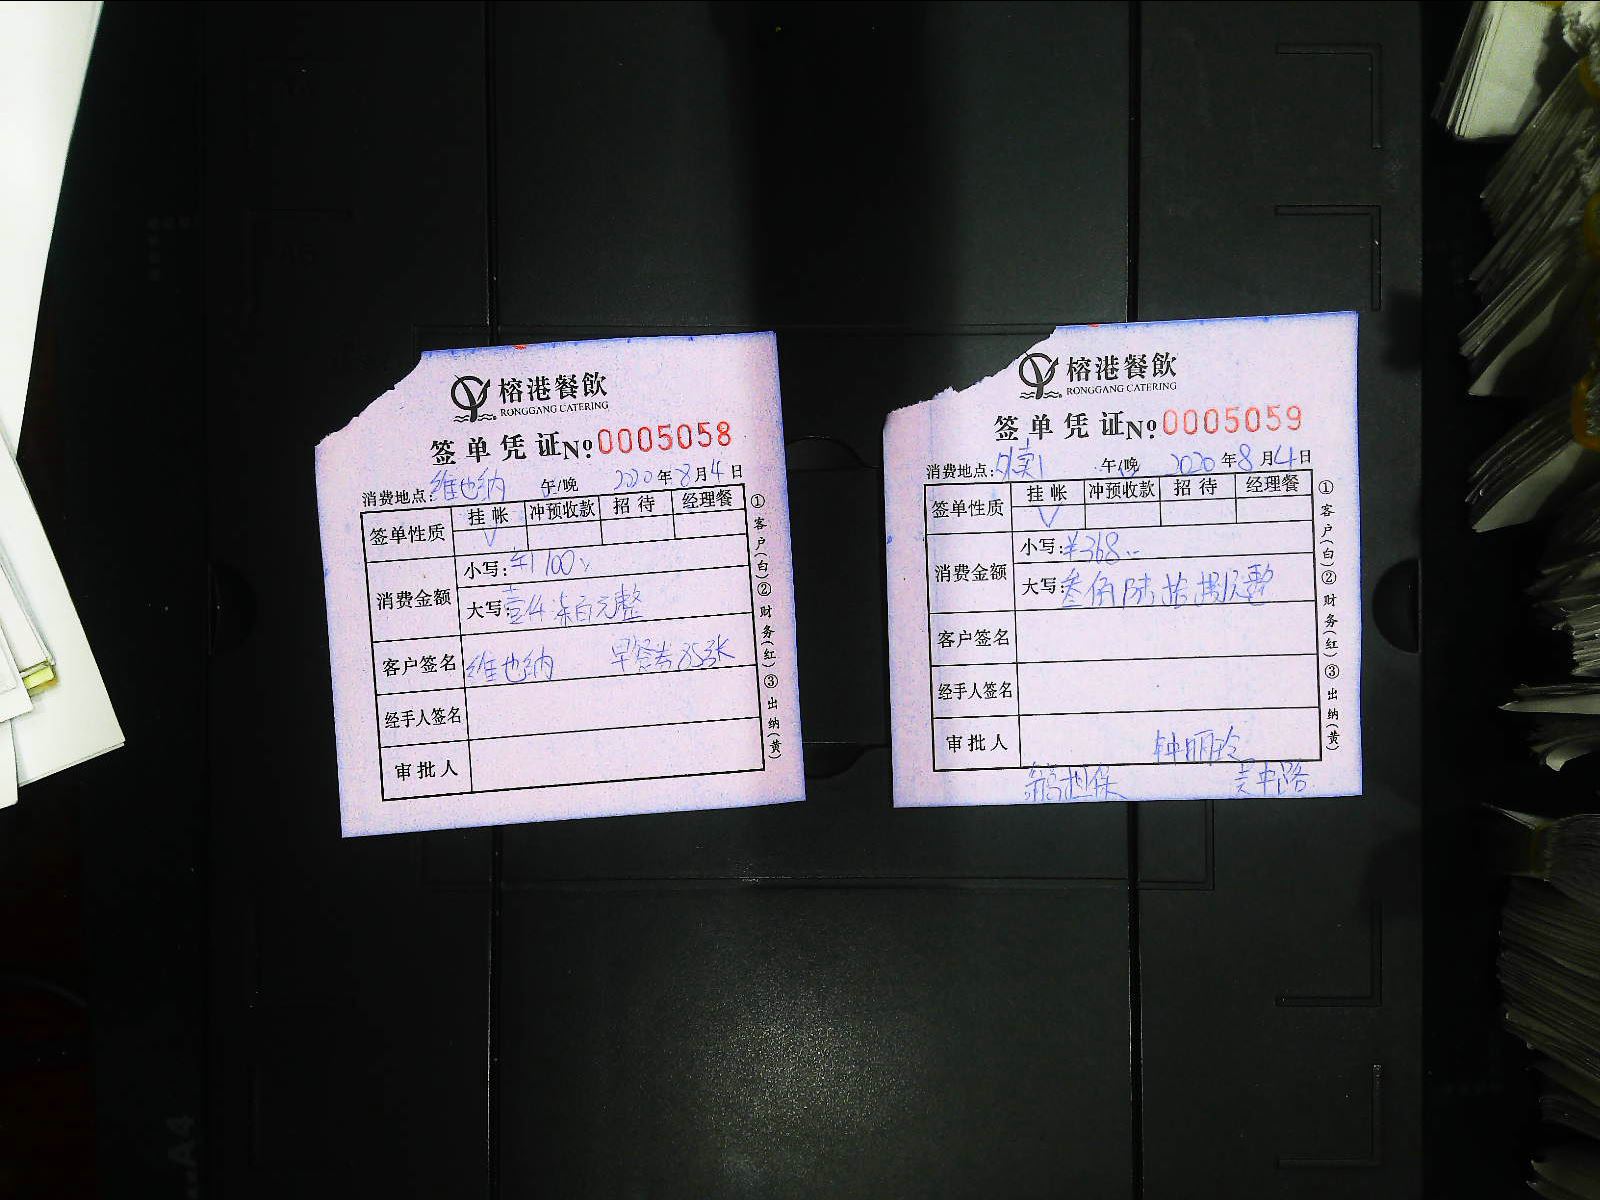 榕港餐飲
RONGGANG CATERING
签单凭证№0005058
消费地点:维也纳 午/晚 2020年8月4日
签单性质 挂帐 冲预收款 招待 经理餐
√
消费金额 小写:
大写 元整
客户签名 维也纳 早餐券85张
经手人签名
审批人
①客户(白)②财务(红)③出纳(黄)
榕港餐飲
RONGGANG CATERING
签单凭证№0005059
消费地点:外卖 午/晚 2020年8月4日
签单性质 挂帐 冲预收款 招待 经理餐
√
消费金额 小写:¥368
大写:叁佰陆拾捌元整
客户签名
经手人签名
审批人 钟丽玲
担保 吴中路
①客户(白)②财务(红)③出纳(黄)
A4